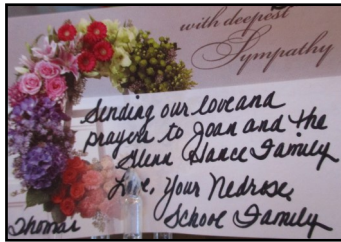 with deepest
Sympathy
Sending our love and
prayers to Joan and the
Glenn Hance Family
Love, Your Nedrose
School Family
Thomas